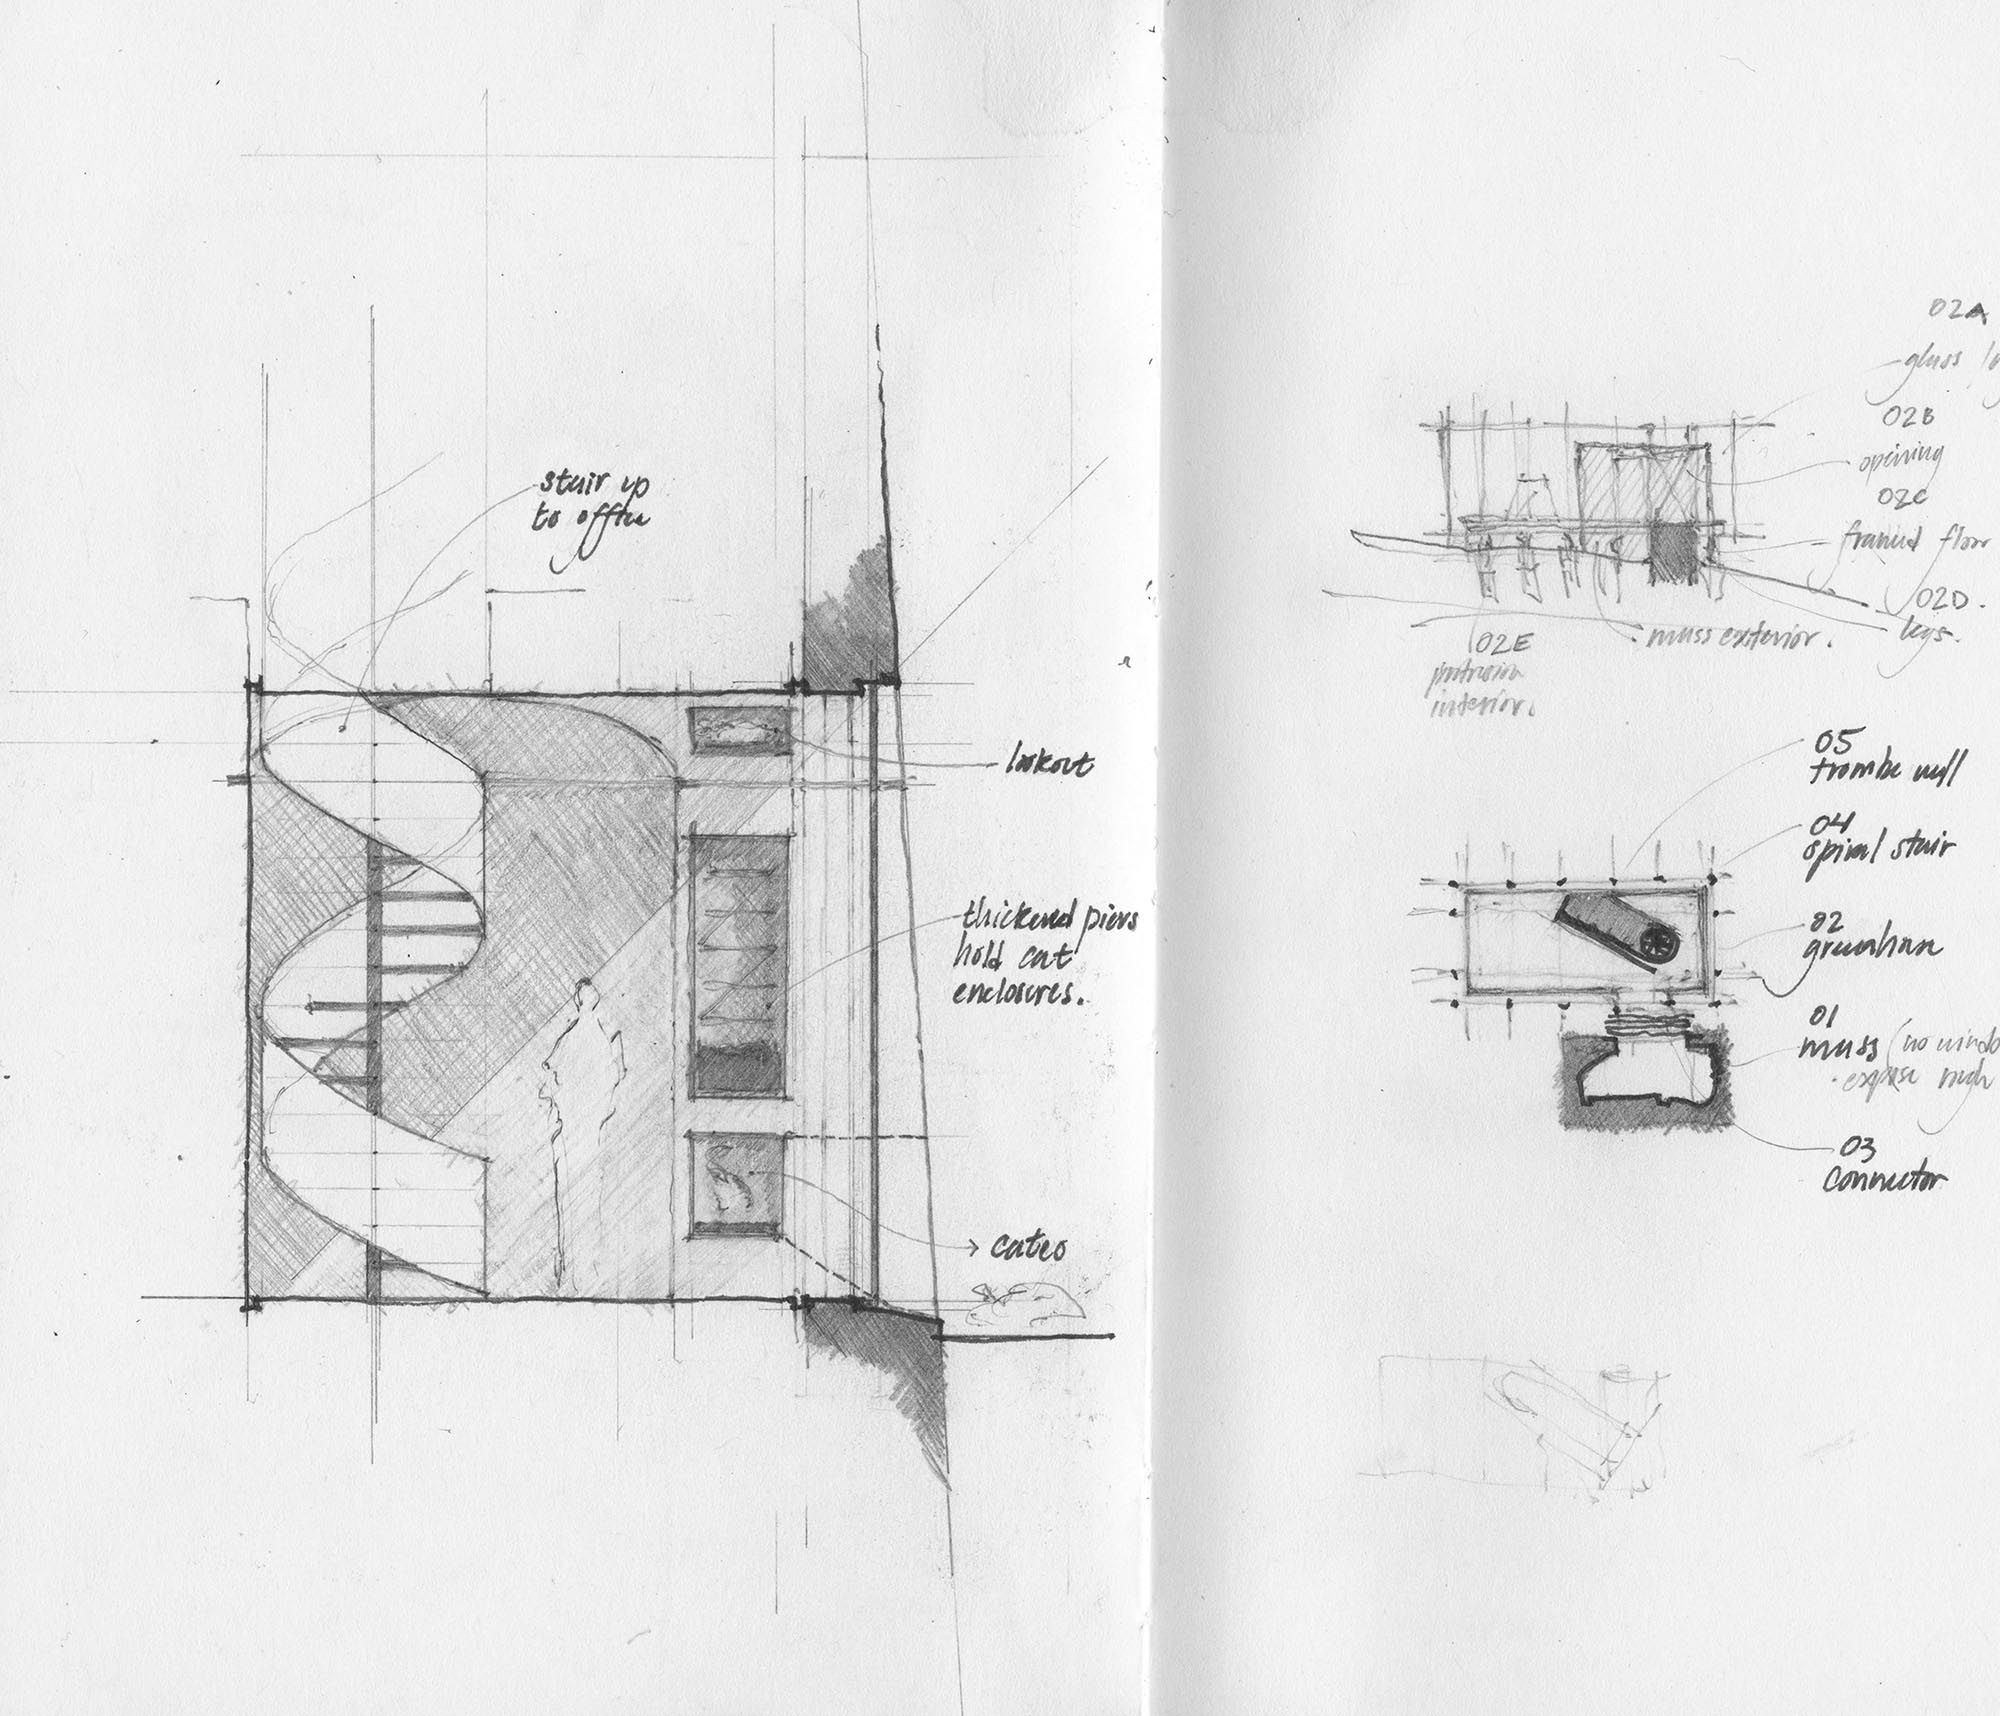 stair up
to office
lookout
thickened piers
hold cat
enclosures.
cateo
02A
glass
02B
opening
02C
framed floor
02D.
legs.
mass exterior.
02E
protrusion
interior.
05
trombe wall
04
spiral stair
02
greenhouse
01
mass (no windo
expose rough
03
connector